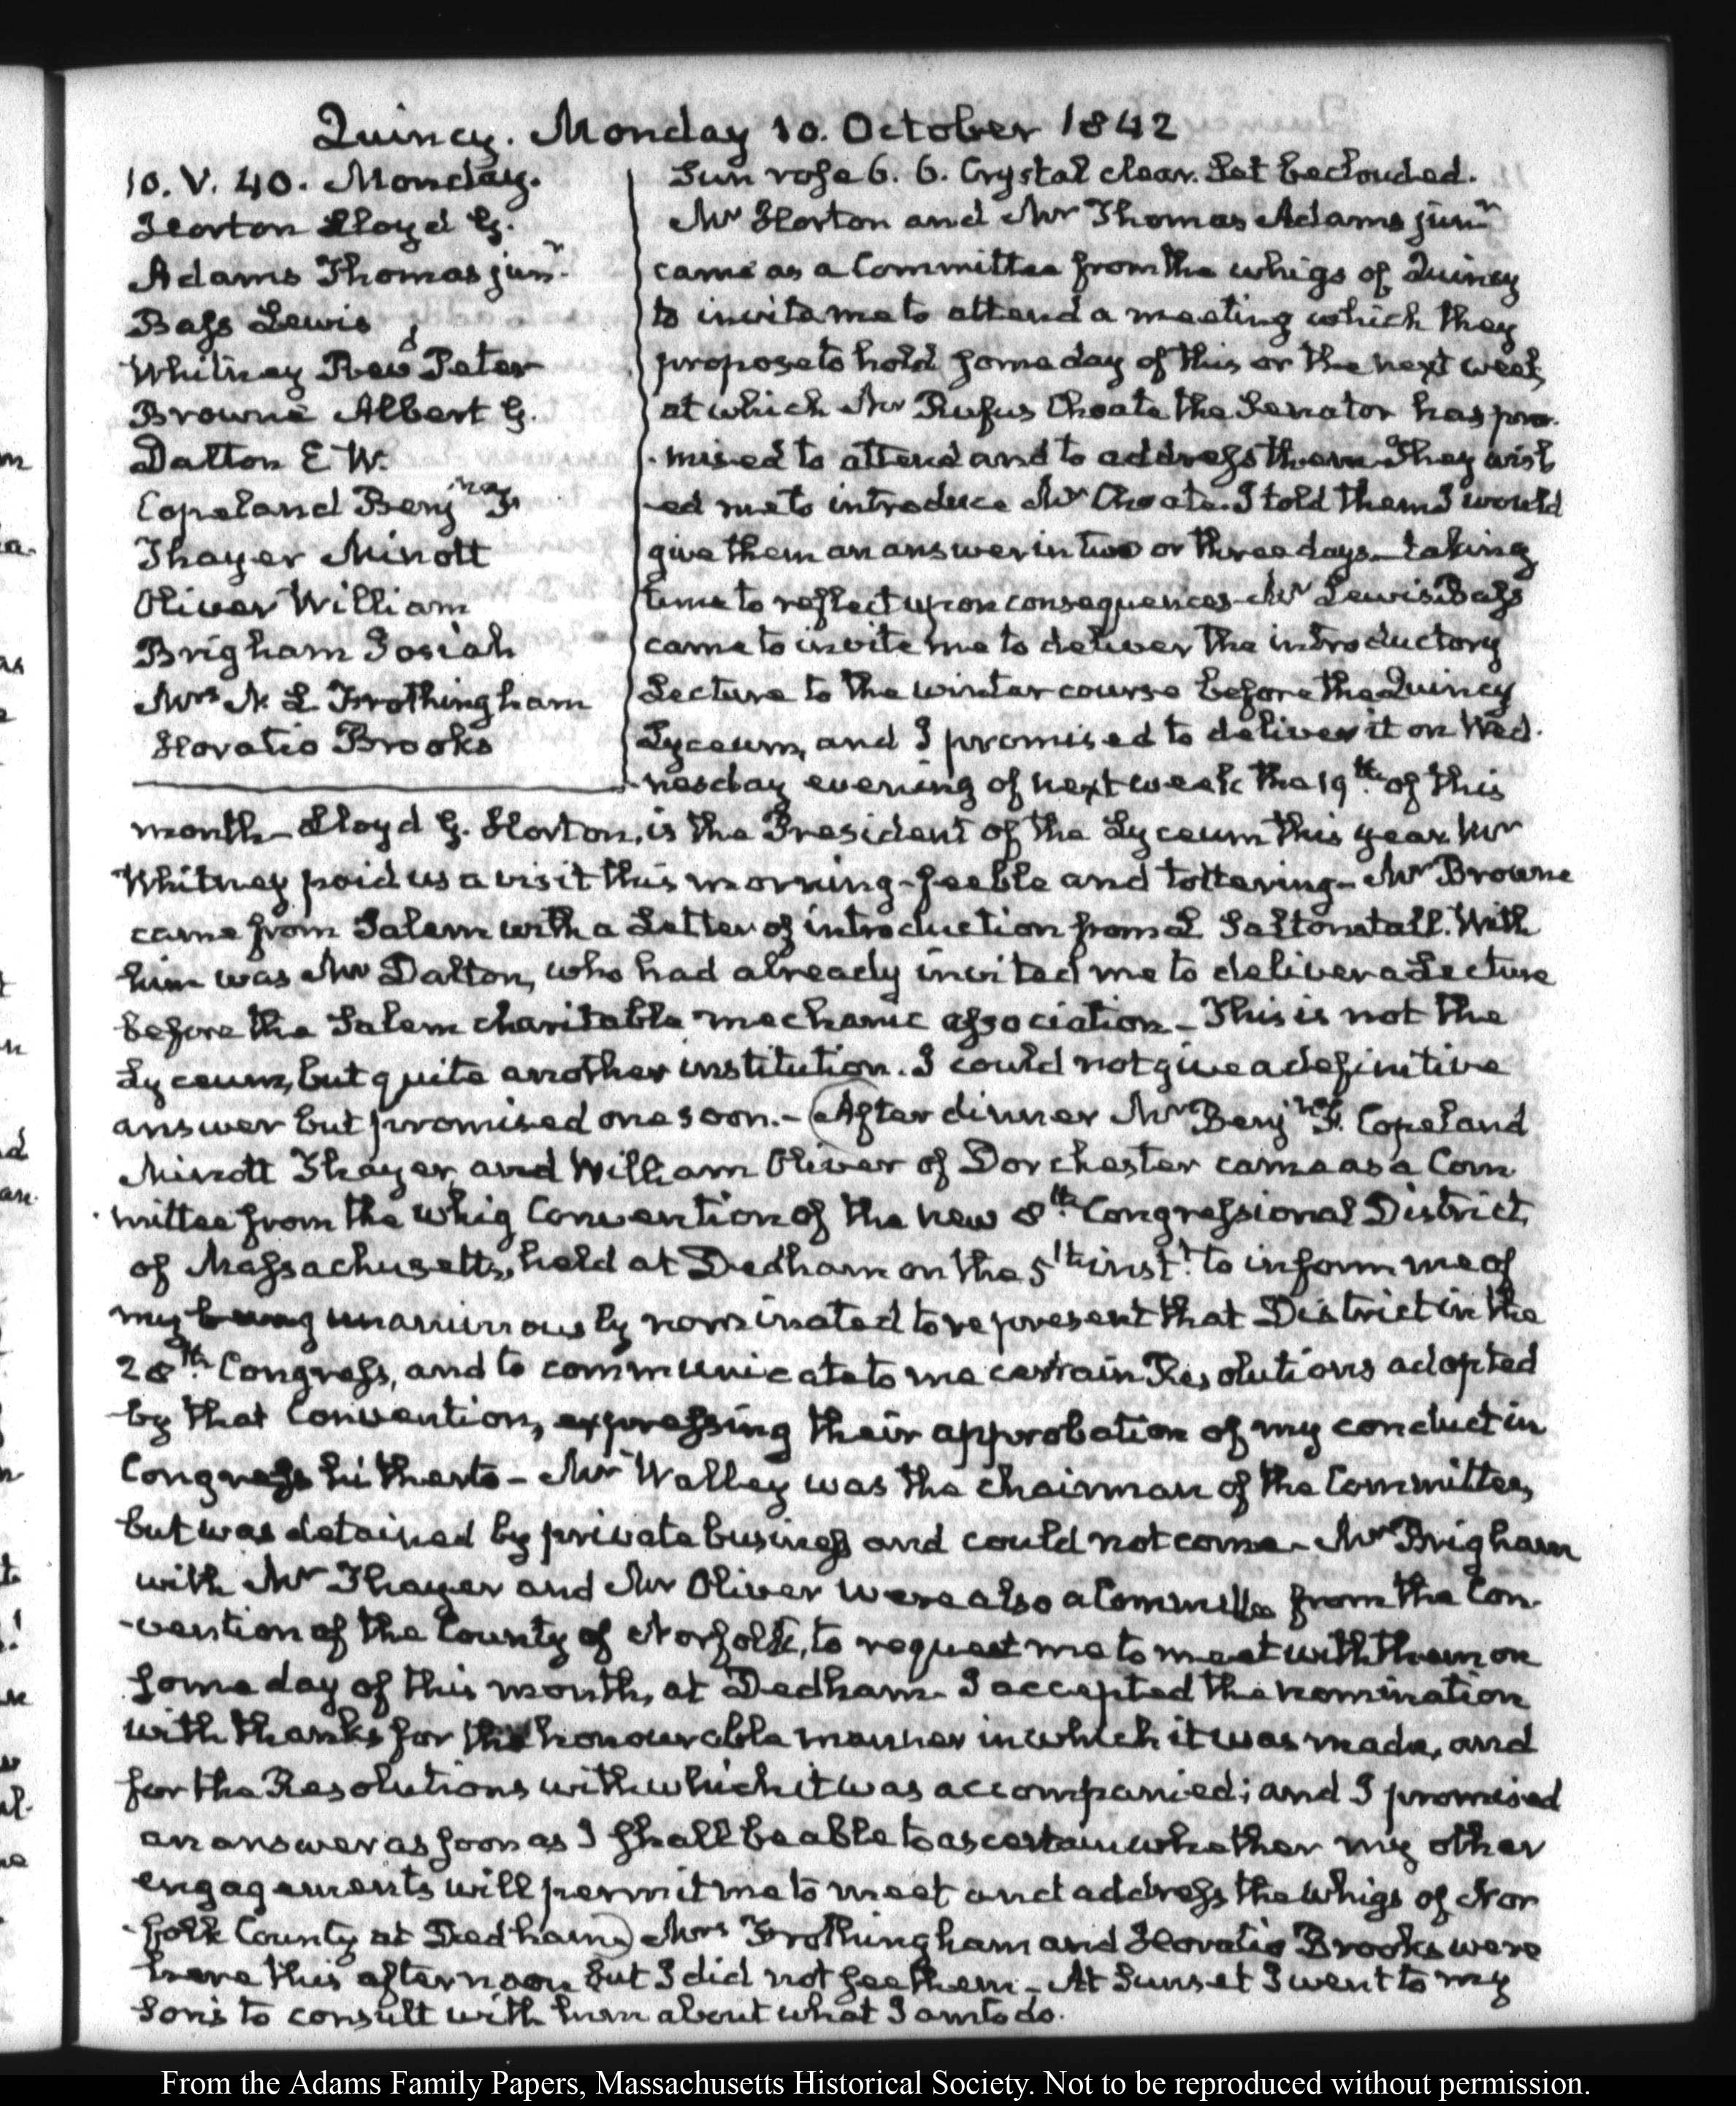 Quincy. Monday 10. October 1842
10. V. 40. Monday.
Horton Lloyd G.
Adams Thomas junr.
Bass Lewis
Whitney Revd Peter
Browne Albert G.
Dalton E W.
Copeland Benjn F
Thayer Minott
Oliver William
Brigham Josiah
Mrs N L Frothingham
Horatio Brooks
Sun rose 6. 6. Crystal clear. Set beclouded.
Mr Horton and Mr Thomas Adams junr
came as a Committee from the whigs of Quincy
to invite me to attend a meeting which they
propose to hold some day of this or the next week,
at which Mr Rufus Choate the Senator has pro-
-mised to attend and to address them They wish
-ed me to introduce Mr Choate. I told them I would
give them an answer in two or three days—taking
time to reflect upon consequences—Mr Lewis Bass
came to invite me to deliver the introductory
Lecture to the winter course before the Quincy
Lyceum, and I promised to deliver it on Wed-
-nesday evening of next week the 19th. of this
month—Lloyd G. Horton, is the President of the Lyceum this year. Mr
Whitney paid us a visit this morning—feeble and tottering—Mr Browne
came from Salem with a Letter of introduction from L Saltonstall. With
him was Mr Dalton, who had already invited me to deliver a Lecture
before the Salem charitable mechanic association—This is not the
Lyceum, but quite another institution. I could not give a definitive
answer but promised one soon.—(After dinner Mr Benjn F. Copeland
Minott Thayer, and William Oliver of Dorchester came as a Com
-mittee from the Whig Convention of the new 8th. Congressional District,
of Massachusetts, held at Dedham on the 5th instt. to inform me of
my being unanimously nominated to represent that District in the
28th. Congress, and to communicate to me certain Resolutions adopted
by that Convention, expressing their approbation of my conduct in
Congress hitherto—Mr Walley was the chairman of the Committee,
but was detained by private business and could not come—Mr Brigham
with Mr Thayer and Mr Oliver were also a Committee from the Con-
-vention of the County of Norfolk, to request me to meet with them on
some day of this month, at Dedham. I accepted the nomination
with thanks for the honourable manner in which it was made, and
for the Resolutions with which it was accompanied; and I promised
an answer as soon as I shall be able to ascertain whether my other
engagements will permit me to meet and address the Whigs of Nor
-folk County at Dedham) Mrs Frothingham and Horatio Brooks were
here this afternoon but I did not see them—At Sunset I went to my
Son's to consult with him about what I am to do.
From the Adams Family Papers, Massachusetts Historical Society. Not to be reproduced without permission.